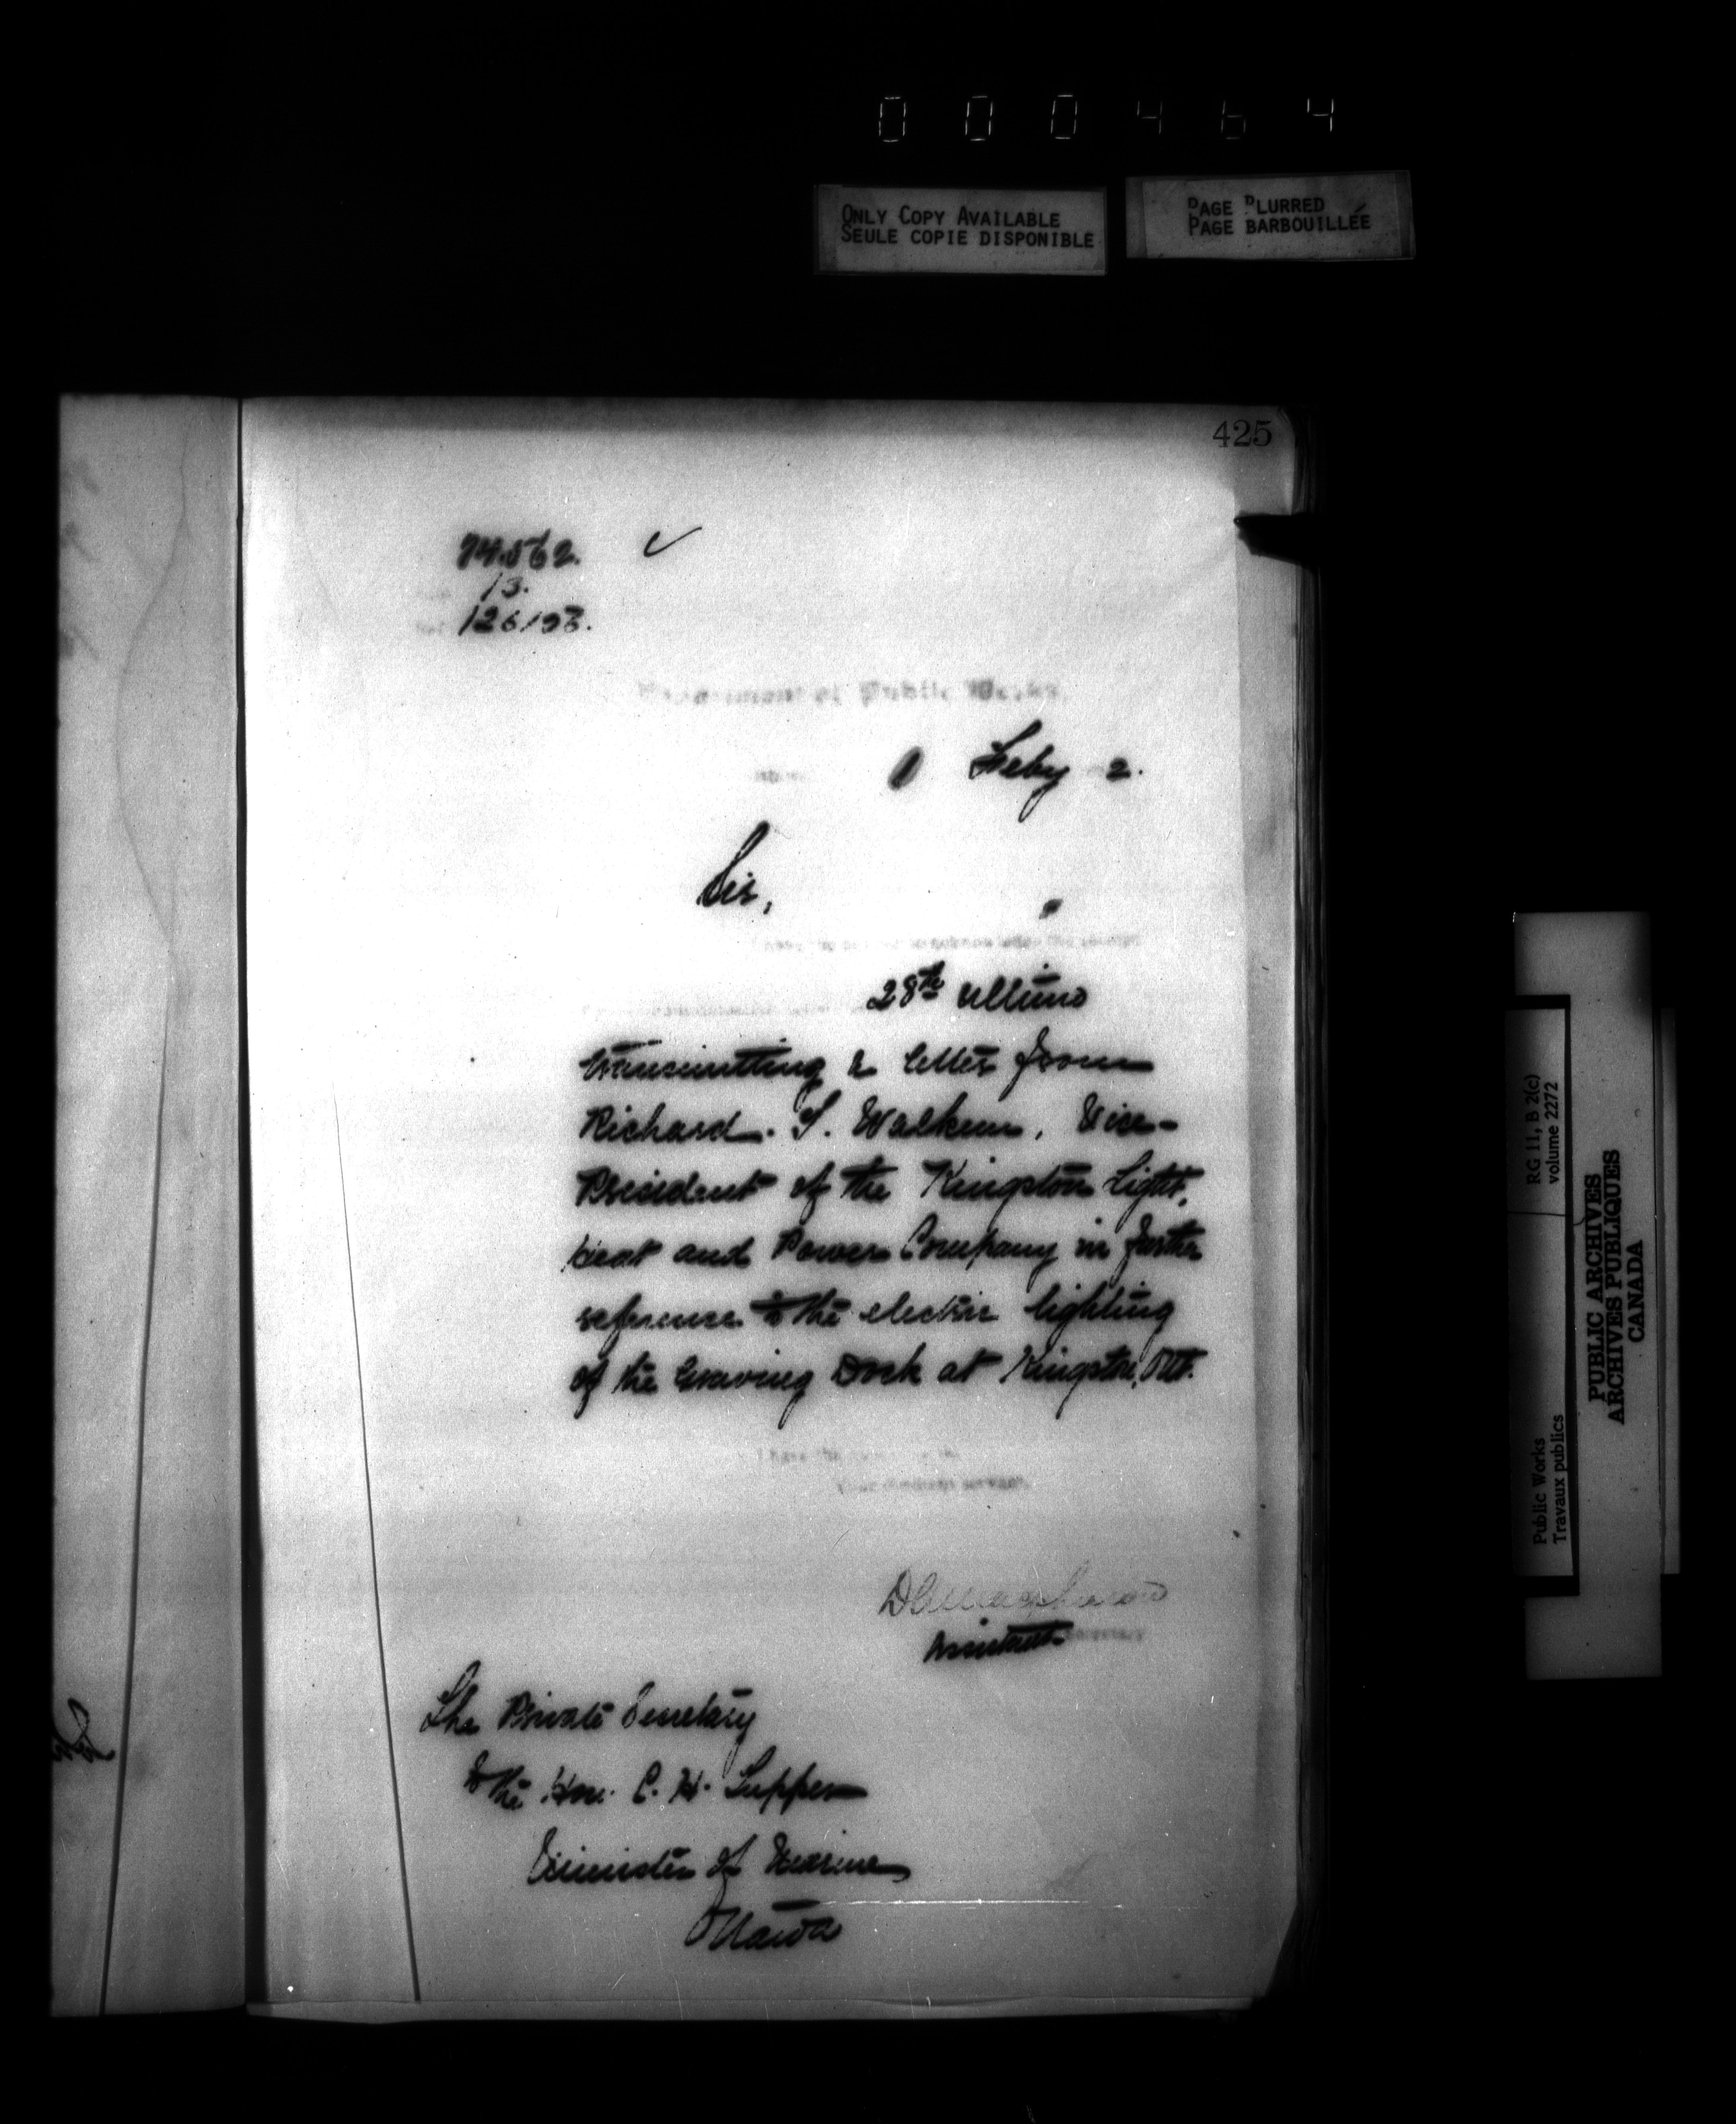 000464
ONLY COPY AVAILABLE
SEULE COPIE DISPONIBLE
PAGE BLURRED
PAGE BARBOUILLÉE
425
74.562.
13.
126193.
Department of Public Works,
Feby 2.
Sir,
I have the honour to acknowledge the receipt
28th ultimo
transmitting a letter from
Richard. T. Walkem, Vice-
President of the Kingston Light,
Heat and Power Company in further
reference to the electric lighting
of the Graving Dock at Kingston, Ont.
I have the
your obedient servant,
Assistant Secretary
The Private Secretary
to the Hon. C. H. Tupper
Minister of Marine
Ottawa
RG 11, B 2(c)
volume 2272
Public Works
Travaux publics
PUBLIC ARCHIVES
ARCHIVES PUBLIQUES
CANADA